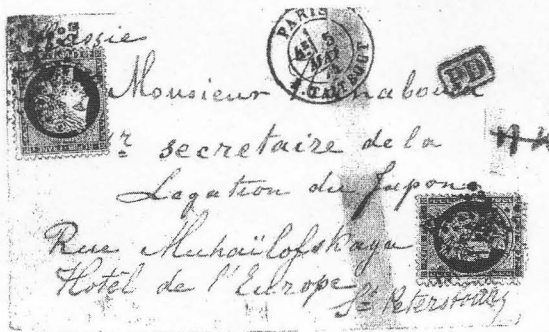 Russie
PARIS
5
MAI
R. TAITBOUT
PD
Monsieur
1r secretaire de la
Legation du Japon
Rue Michaïlofskaya
Hotel de l'Europe
St Petersbourg